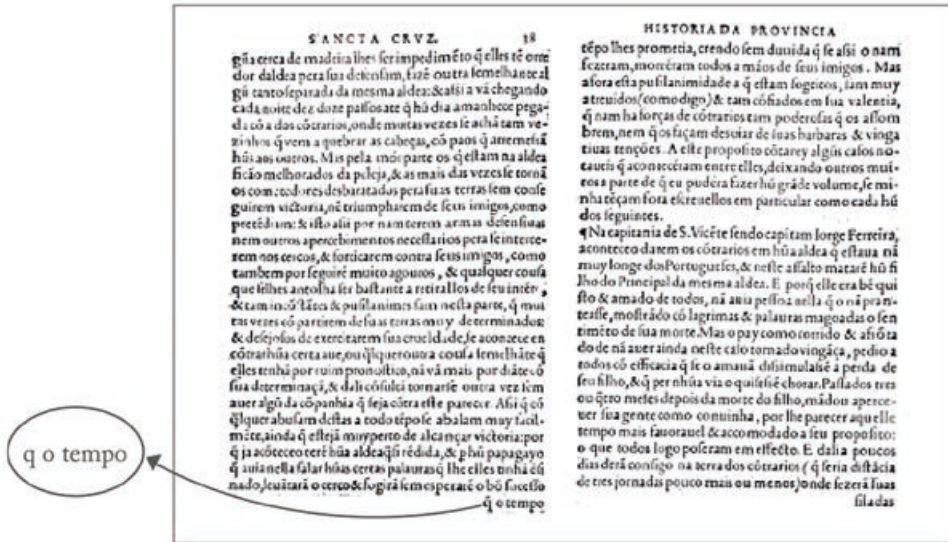 SANCTA CRVZ. 38
gũa cerca de madeira lhes ser impedimẽto q̃ elles tẽ orde
dor daldea pera sua defensam, fazẽ outra semelhante al
gũ tanto separada da mesma aldea: & assi a vã chegando
cada noite dez doze passos ate q̃ hũ dia amanhece pega-
da cõ a dos cõtrarios, onde muitas vezes se achã tam ve-
zinhos q̃ vem a quebrar as cabeças, cõ paos q̃ arremessã
hũs aos outros. Mas pela mór parte os q̃ estam na aldea
ficão melhorados da peleja, & as mais das vezes se tornã
os cometedores desbaratados pera suas terras sem conse
guirem victoria, nẽ triumpharem de seus imigos, como
pretẽdiam: & isto assi por nam terem armas defensiuas
nem outros apercebimentos necessarios pera se interte-
rem nos cercos, & fortificarem contra seus imigos, como
tambem por seguirẽ muito agouros, & qualquer cousa
que selhes antolha ser bastante a retirallos de seu intẽto,
& tam incõstãtes & pusilanimes sam nesta parte, q̃ mui
tas vezes cõ partirem de suas terras muy determinados:
& desejosos de exercitarem sua crueldade, se acontece en
cõtrar hũa certa aue, ou q̃lquer outra cousa semelhãte q̃
elles tenhã por ruim pronostico, nã vã mais por diãte cõ
sua determinaçã, & dali cõsultã tornarse outra vez sem
auer algũ da cõpanhia q̃ seja cõtra este parecer. Assi q̃ cõ
q̃lquer abusam destas a todo tẽpo se abalam muy facil-
mẽte, ainda q̃ estejã muy perto de alcançar victoria: por
q̃ ja acõteceo terẽ hũa aldea q̃si rẽdida, & p hũ papagayo
q̃ auia nella falar hũas certas palauras q̃ lhe elles tinhã ẽsi
nado, leuãtarã o cerco & fugirã sem esperarẽ o bõ successo
q̃ o tempo
q o tempo
HISTORIA DA PROVINCIA
tẽpo lhes prometia, crendo sem duuida q̃ se assi o nam
fezeram, morrèram todos a mãos de seus imigos. Mas
afora esta pusilanimidade a q̃ estam sogeitos, sam muy
atreuidos (como digo) & tam cõfiados em sua valentia,
q̃ nam ha forças de cõtrarios tam poderosas q̃ os assom
brem, nem q̃ os façam desuiar de suas barbaras & vinga
tiuas tenções. A este proposito cõtarey algũs casos no-
taueis q̃ aconteceram entre elles, deixando outros mui-
tos a parte de q̃ eu pudéra fazer hũ grãde volume, se mi-
nha tẽçam fora escreuellos em particular como cada hũ
dos seguintes.
¶Na capitania de S. Vicẽte sendo capitam Iorge Ferreira,
aconteceo darem os cõtrarios em hũa aldea q̃ estaua nã
muy longe dos Portugueses, & neste assalto matarẽ hũ fi
lho do Principal da mesma aldea. E porq̃ elle era bẽ qui
sto & amado de todos, nã auia pessoa nella q̃ o nã pran-
teasse, mostrãdo cõ lagrimas & palauras magoadas o sen
timẽto de sua morte. Mas o pay como corrido & afrõta
do de nã auer ainda neste caso tomado vingãça, pedio a
todos cõ efficacia q̃ se o amauã dissimulassẽ a perda de
seu filho, & q̃ per nhũa via o quisessẽ chorar. Passados tres
ou q̃tro meses depois da morte do filho, mãdou aperce-
uer sua gente como conuinha, por lhe parecer aquelle
tempo mais fauorauel & accomodado a seu proposito:
o que todos logo poseram em effecto. E dali a poucos
dias derã consigo na terra dos cõtrarios (q̃ seria distãcia
de tres jornadas pouco mais ou menos) onde fezerã suas
siladas